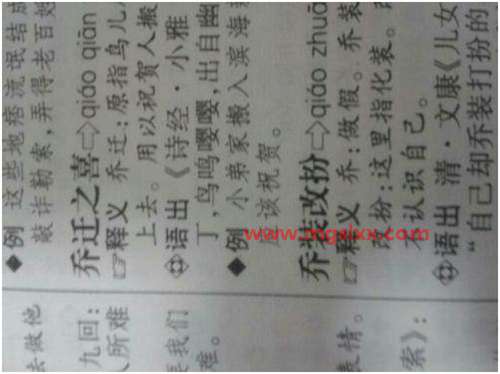 ◆例 这些地痞流氓结成
敲诈勒索，弄得老百姓
乔迁之喜⇨qiáo qiān
☞释义 乔迁：原指鸟儿
上去。用以祝贺人搬
语出《诗经·小雅
丁，鸟鸣嘤嘤，出自幽
◆例 小弟家搬入滨海
该祝贺。
乔装改扮⇨qiáo zhuā
☞释义 乔：做假。乔装
改扮：这里指化装。
不认识自己。
语出 清·文康《儿女
“自己却乔装打扮的
去做他
九回：
人所难
要我们
难。
表情。
索》：